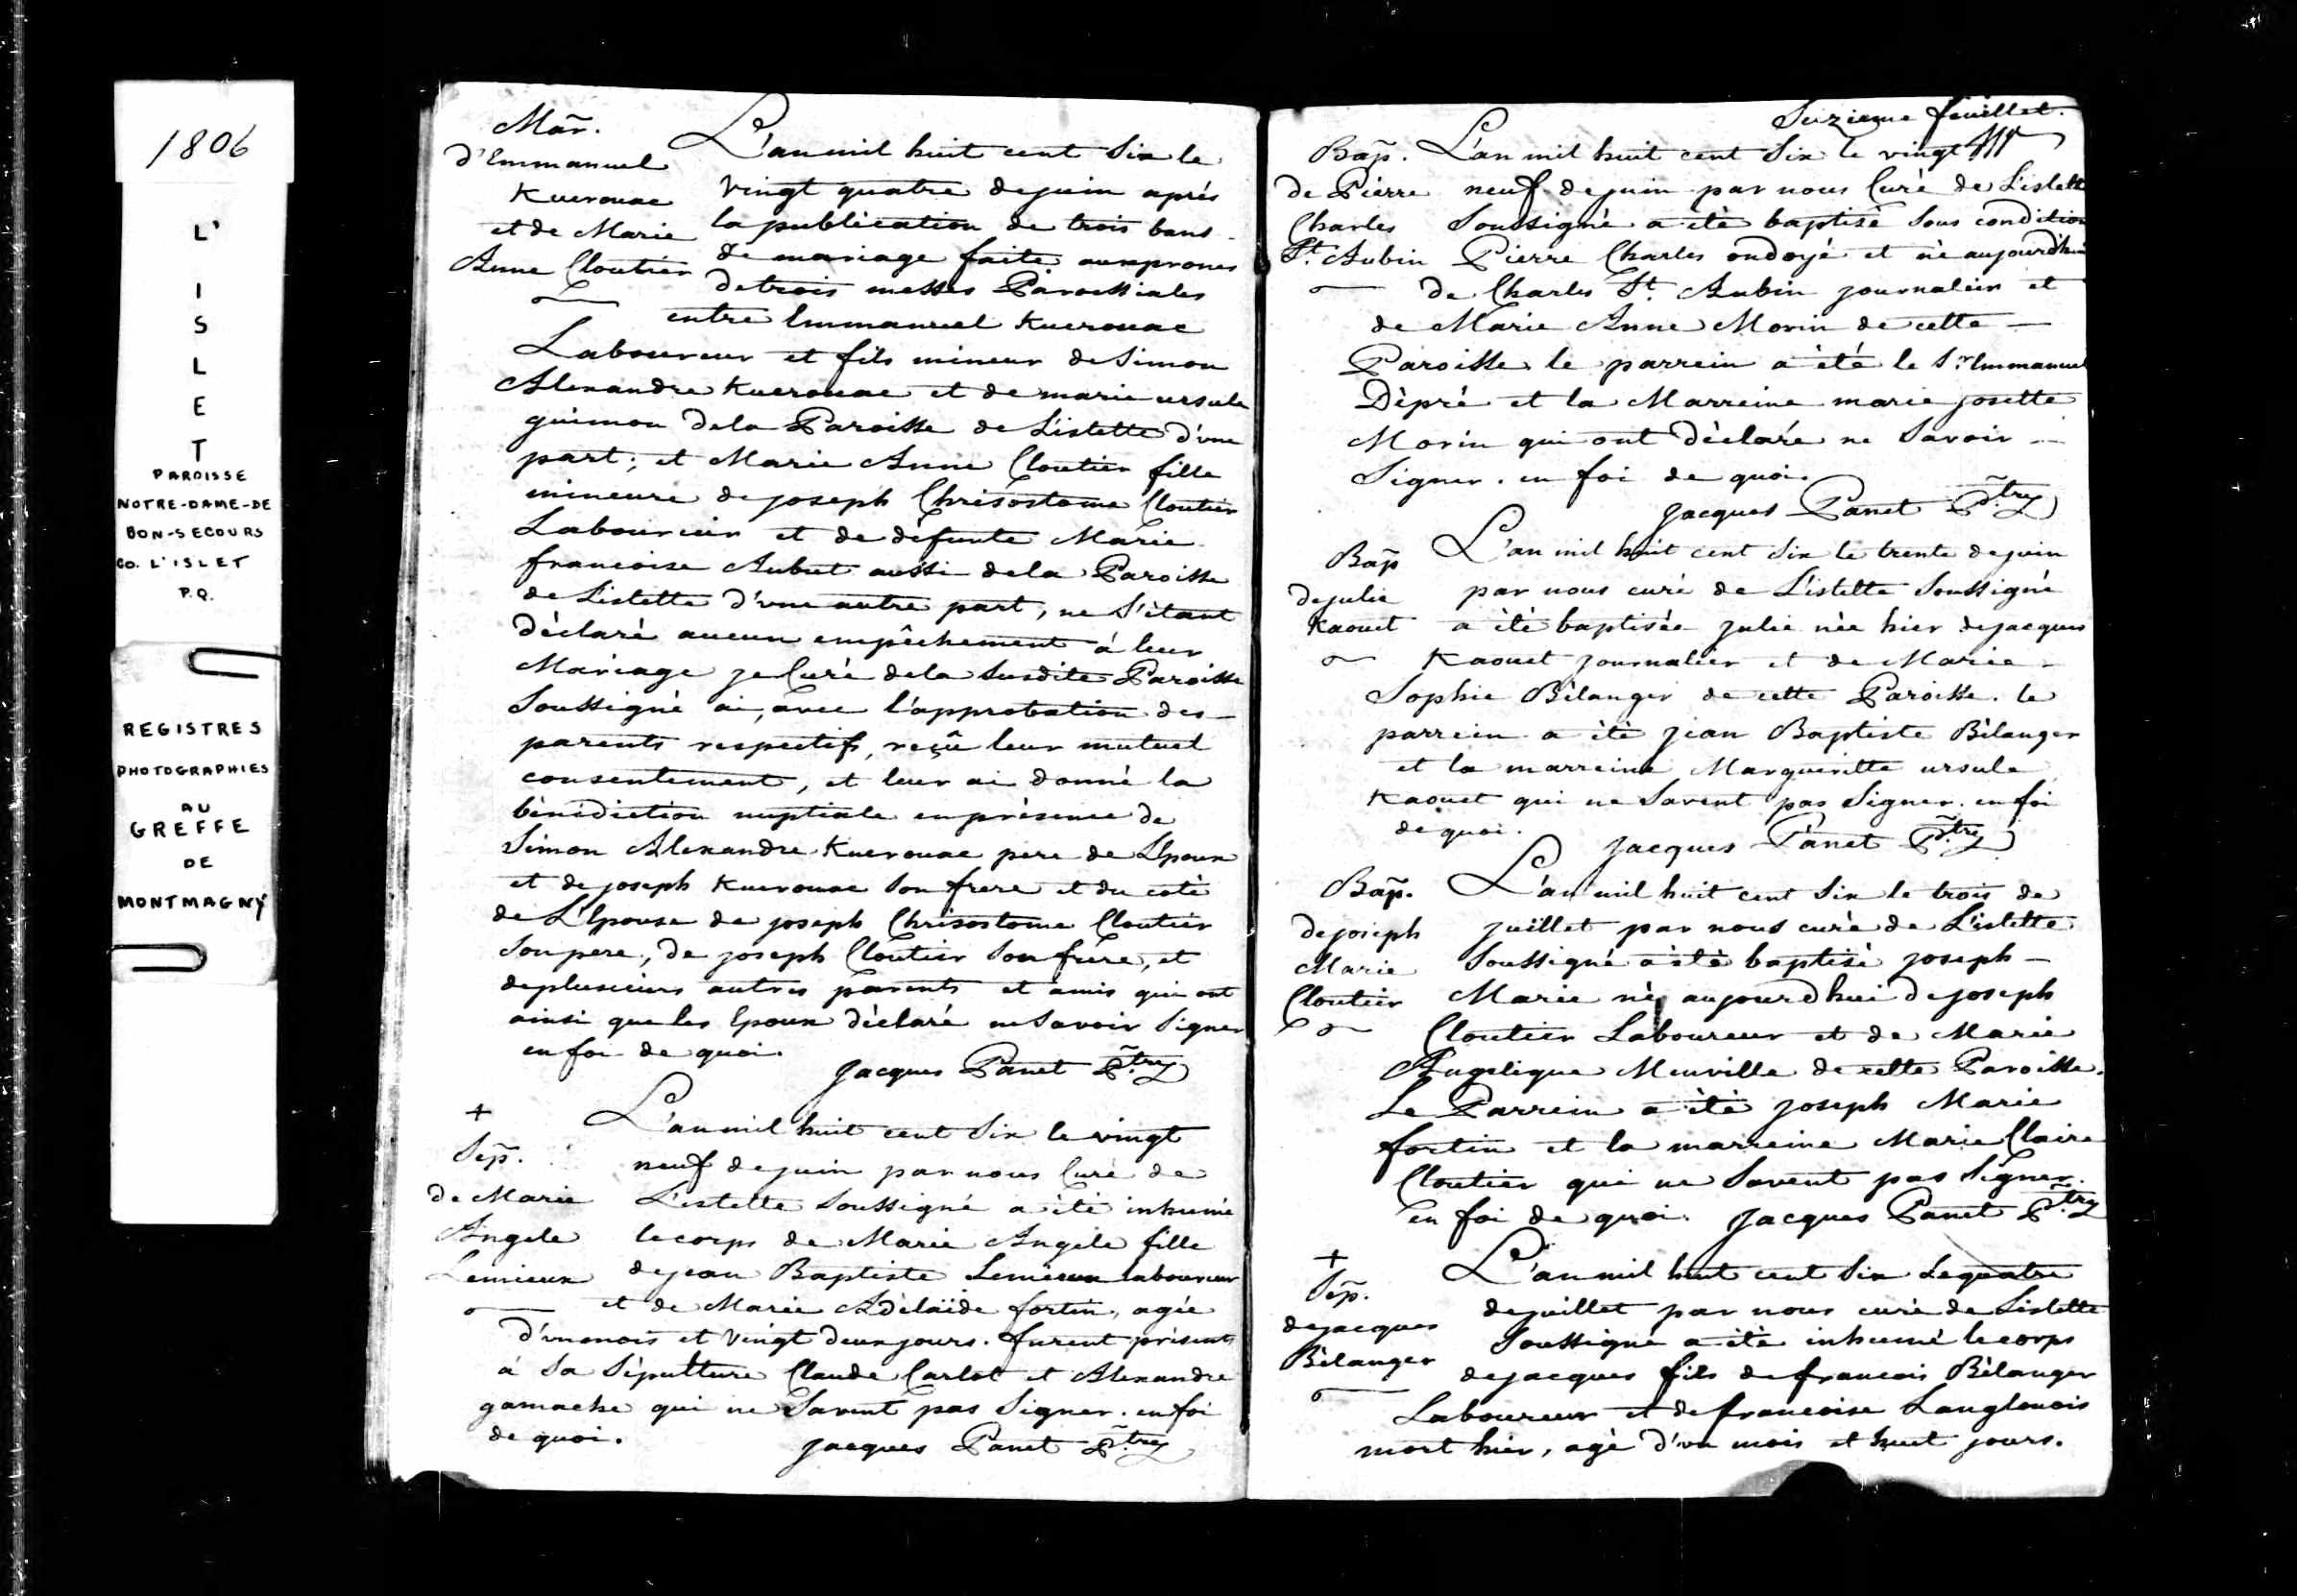 1806
L'
I
S
L
E
T
PAROISSE
NOTRE-DAME-DE
BON-SECOURS
CO. L'ISLET
P.Q.
REGISTRES
PHOTOGRAPHIES
AU
GREFFE
DE
MONTMAGNY
Mar̃.
d'Emmanuel
Kuerouac
et de Marie
Anne Cloutier
L'an mil huit cent Six le
vingt quatre de juin aprés
la publication de trois bans
de mariage faite aux prones
de trois messes Paroissiales
entre Emmanuel Kuerouac
Laboureur et fils mineur de Simon
Alexandre Kuerouac et de marie ursule
guimon dela Paroisse de Lislette d'une
part; et Marie Anne Cloutier fille
mineure de joseph Chrisostome Cloutier
Laboureur et de défunte Marie
francoise Aubut aussi dela Paroisse
de Lislette d'une autre part, ne S'étant
déclaré aucun empêchement á leur
Mariage je Curé dela Susdite Paroisse
Soussigné ai, avec l'approbation des
parents respectifs, reçû leur mutuel
consentement, et leur ai donné la
bénédiction nuptiale en présence de
Simon Alexandre Kuerouac pere de L'Epoux
et de joseph Kuerouac Son frere et du coté
de L'Epouse de joseph Chrisostome Cloutier
Son pere, de joseph Cloutier Son frere, et
de plusieurs autres parents et amis qui ont
ainsi que les Epoux déclaré ne Savoir Signer
en foi de quoi.
Jacques Panet P.tre
+
Sep̃.
de Marie
Angele
Lemieux
L'an mil huit cent Six le vingt
neuf de juin par nous Curé de
L'islette Soussigné a été inhumé
le corps de Marie Angele fille
de jean Baptiste Lemieux laboureur
et de Marie Adélaïde fortin, agée
d'un mois et vingt deux jours. furent présents
á Sa Sépulture Claude Carlot et Alexandre
gamache qui ne Savent pas Signer. en foi
de quoi.
Jacques Panet P.tre
Seizieme feuillet.
Bap̃.
de Pierre
Charles
St. Aubin
L'an mil huit cent Six le vingt
neuf de juin par nous Curé de L'islette
Soussigné a été baptisé Sous condition
Pierre Charles ondoyé et né aujourd'hui
de Charles St. Aubin journalier et
de Marie Anne Morin de cette
Paroisse le parrein a été le Sr. Emmanuel
Dépré et la Marreine marie josette
Morin qui ont déclaré ne Savoir
Signer. en foi de quoi.
Jacques Panet P.tre
Bap̃
de julie
Kaouet
L'an mil huit cent Six le trente de juin
par nous curé de L'islette Soussigné
a été baptisée julie née hier de jacques
Kaouet journalier et de Marie
Sophie Bélanger de cette Paroisse. le
parrein a été jean Baptiste Bélanger
et la marreine Margueritte ursule
Kaouet qui ne Savent pas Signer. en foi
de quoi.
Jacques Panet P.tre
Bap̃.
de joseph
Marie
Cloutier
L'an mil huit cent Six le trois de
juillet par nous curé de L'islette
Soussigné a été baptisé joseph
Marie né aujourd'hui de joseph
Cloutier Laboureur et de Marie
Angelique Meuville de cette Paroisse.
Le Parrein a été joseph Marie
fortin et la marreine Marie Claire
Cloutier qui ne Savent pas Signer.
En foi de quoi. Jacques Panet P.tre
+
Sep̃.
de jacques
Bélanger
L'an mil huit cent Six Le quatre
de juillet par nous curé de Lislette
Soussigné a été inhumé le corps
de jacques fils de francois Bélanger
Laboureur et de francoise Langlouois
mort hier, agé d'un mois et huit jours.